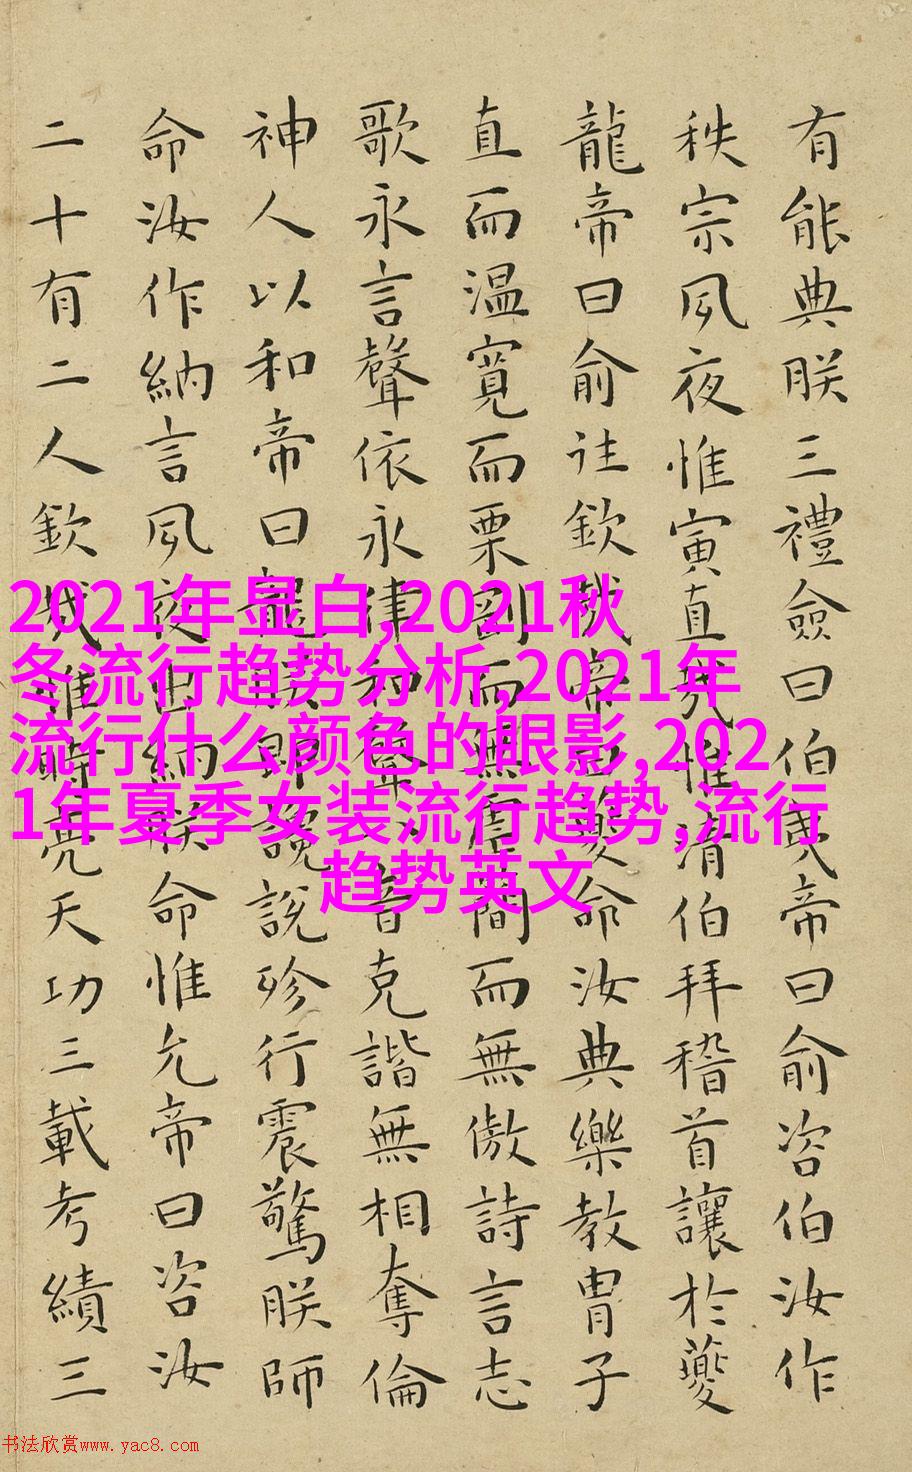 有能典朕三禮僉曰伯夷帝曰俞咨伯汝作
秩宗夙夜惟寅直哉惟清伯拜稽首讓於夔
龍帝曰俞往欽哉帝曰夔命汝典樂教胄子
直而温寬而栗剛而無虐簡而無傲詩言志
歌永言聲依永律和聲八音克諧無相奪倫
神人以和帝曰龍朕堲讒說殄行震驚朕師
命汝作納言夙夜出納朕命惟允帝曰咨汝
二十有二人欽哉惟時亮天功三載考績三
2021年显白,2021秋
冬流行趋势分析,2021年
流行什么颜色的眼影,202
1年夏季女装流行趋势,流行
趋势英文
书法欣赏www.yac8.com